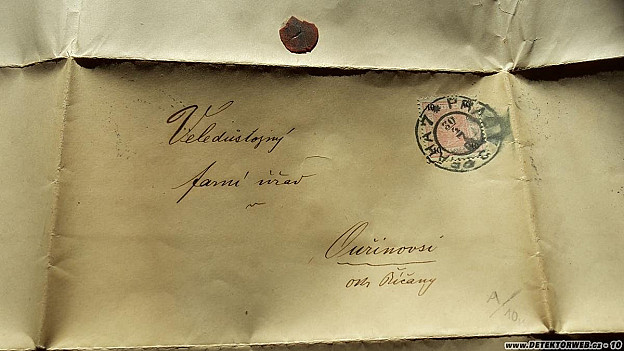 Veledůstojný
farní úřad
v
Ouřinovsi
okr Říčany
A/10.
PRAHA 7 PRAG
30
www.DETEKTORWEB.cz - 10